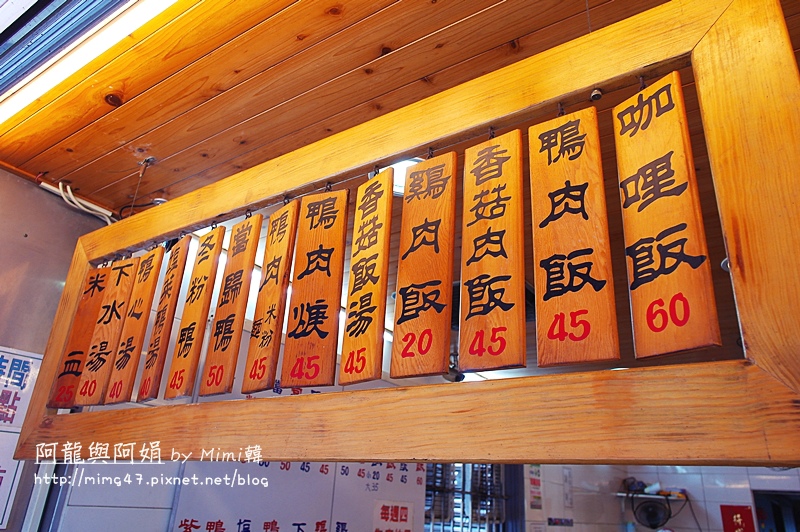 咖哩飯 60
鴨肉飯 45
香菇肉飯 45
鷄肉飯 20
香菇飯湯 45
鴨肉焿 45
鴨肉 米粉 45
當歸鴨 50
冬粉鴨 45
40
鴨心湯 40
下水湯 40
米血 25
阿龍與阿娟 by Mimi韓
http://mimg47.pixnet.net/blog
時間
點
每週四
紫鴨 塩鴨 下